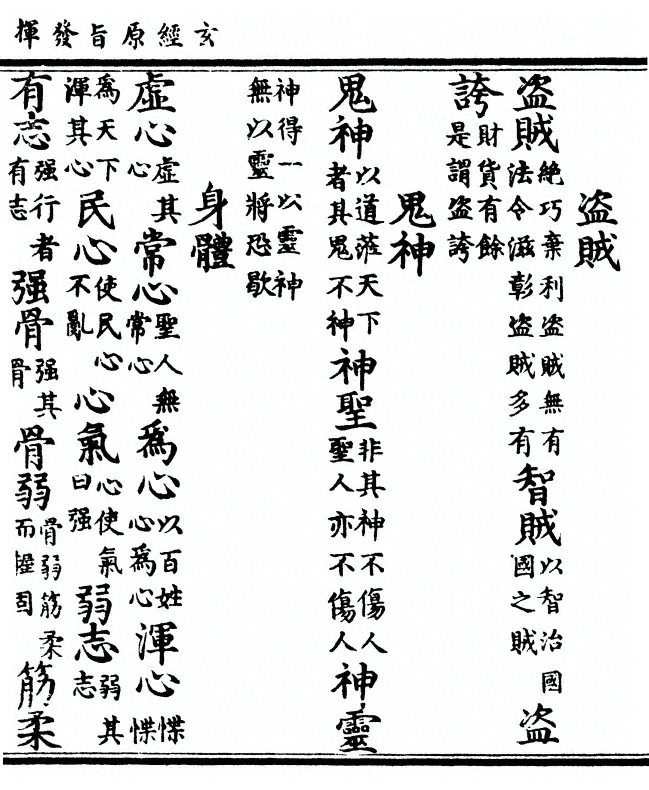 玄經原旨發揮
盜賊
盜賊絶巧棄利盜賊無有法令滋彰盜賊多有智賊以智治國國之賊盜
誇財貨有餘是謂盜誇
鬼神
鬼神以道蒞天下者其鬼不神神聖非其神不傷人聖人亦不傷人神靈
神得一以靈神無以靈將恐歇
身體
虛心虛其心常心聖人無常心爲心以百姓心爲心渾心惵惵
爲天下渾其心民心使民心不亂心氣心使氣曰强弱志弱其志
有志强行者有志强骨强其骨骨弱骨弱筋柔而握固筋柔